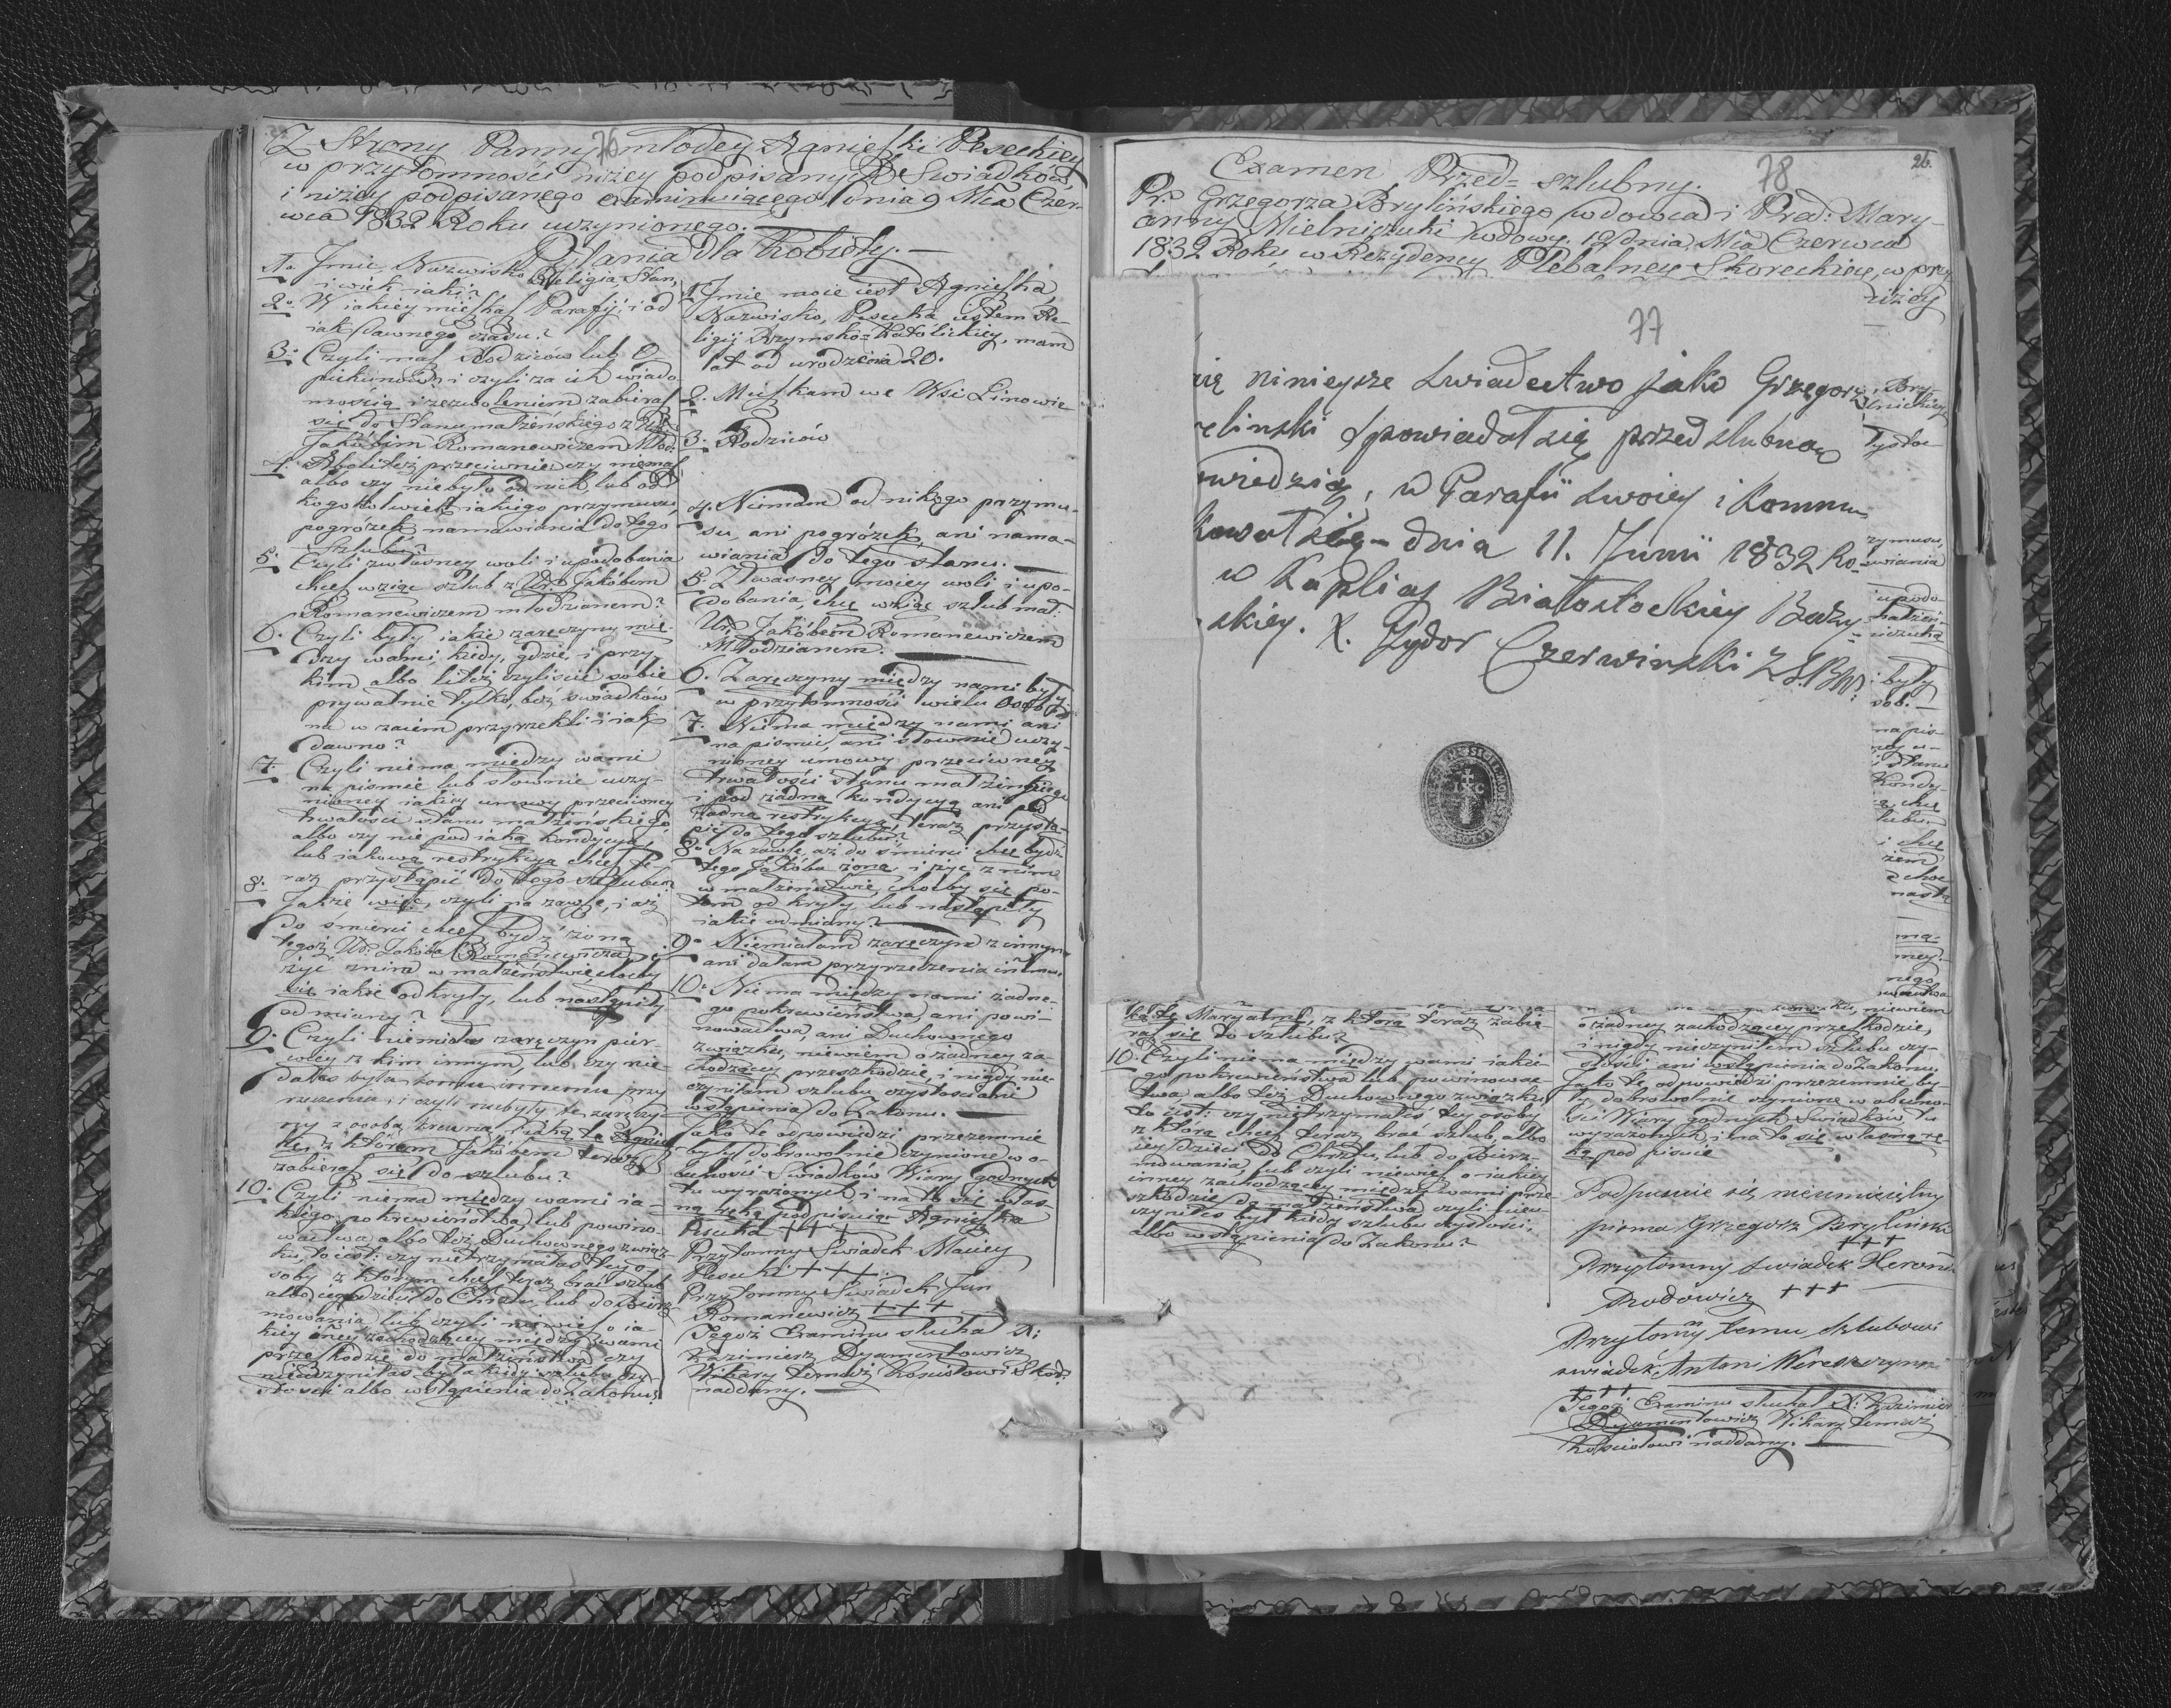 76
Z Strony Panny młodey Agnieszki Peseckiey
w przytomności niżey podpisanych Swiadków
i niżey podpisanego examinuiącego Dnia 9 Mca Czer-
wca 1832 Roku uczynionego.
Pytania dla Kobiety.
1o Jmie, Nazwisko, Religia, Stan,
i wiek iaki?
2o W iakiey mieszkasz Parafij, i od
iak dawnego czasu?
3o Czyli masz Rodziców lub O-
piekunów, i czyli za ich wiado-
mością i zezwoleniem zabierasz
się do Stanu małżeńskiego z Ur:
Jakóbem Romanewiczem Młod:
4. Abo liteż przeciwnie czy niemasz
albo czy niebyło od nich, lub od
kogokolwiek iakiego przymusu,
pogróżek, namawiania do tego
Szlubu?
5. Czyli zwłasney woli i upodobania
chcesz wziąć szlub z Ur: Jakóbem
Romanewiczem młodzianem?
6. Czyli były iakie zaręczyny mię-
dzy wami, kiedy, gdzie, i przy
kim albo liteż czyliście sobie
prywatnie tylko, beż swiadków
na wzaiem przyrzekli i iak
dawno?
7. Czyli niema między wami
na pismie lub słownie uczy-
nioney iakiey umowy przeciwney
trwałości stanu małżeńskiego
albo czy nie pod iaką kondycyą,
lub iakową restrykcyą chcesz te-
raz przystąpić do tego szlubu?
8. Jakże więc, czyli na zawsze, i aż
do śmierci chcesz bydź żoną
tegoż Ur: Jakóba Romanewicza, i
żyć znim w małżeństwie choćby
się iakie odkryły, lub nastąpiły
odmiany?
9. Czyli niemiałas zaręczyn pier-
wiey z kim innym, lub czy nie
dałas była komu innemu przy
rzeczenia, i czyli niebyły te zaręczy-
ny z osobą krewną
z którem Jakóbem teraz
zabierasz się do szlubu?
10. Czyli niema między wami ia-
kiego pokrewieństwa, lub powino-
wactwa, albo też Duchownego związ-
ku, to iest: czy nietrzymałas tey o-
soby z którym chcesz teraz brać szlub
albo iego dzieci do Chrztu, lub do bierz-
mowania, lub czyli niewiesz o ia-
kiey iney zachodzącey między wami
przeszkodzie do małżeństwa, czy
nieuczyniłas była kiedy szlubu czy-
stości albo wstąpienia do Zakonu?
1. Jmie moie iest Agnieszka,
Nazwisko, Pesecka iestem Re-
ligij Rzymsko=Katolickiey, mam
lat od urodzenia 20.
2. Mieszkam we Wsi Linowie
3. Rodziców
4. Niemam od nikogo przymu-
su, ani pogróżek, ani nama-
wiania do tego stanu.
5. Z własney moiey woli i upo-
dobania, chcę wziąć szlub mał:
Ur: Jakóbem Romanewiczem
Młodzianem.
6. Zaręczyny między nami były
w przytomności wielu Osob
7. Niema między nami ani
na pismie, ani słownie uczy-
nioney umowy przeciwney
trwałości stanu małżeńskiego
i pod żadną kondycyą ani pod
żadną restrykcyą, teraz przystę-
puię do tego szlubu?
8o Na zawsze aż do śmierci chcę bydź
tego Jakóba żoną, i żyć z nim
w małżeństwie, choćby się po-
tem odkryły, lub nastąpiły
iakie odmiany?
9o Niemiałam zaręczyn z innym
ani dałam przyrzeczenia innemu
10. Niema między nami żadne-
go pokrewieństwa, ani powi-
nowactwa, ani Duchownego
związku, niewiem o żadney za-
chodzącey przeszkodzie, i nigdy nie-
czyniłam szlubu czystości ani
wstąpienia do Zakonu.
Jako te odpowiedzi przezemnie
były dobrowolnie czynione w o-
becności Swiadków Wiary godnych
tu wyrażonych i na to się włas-
ną ręką podpisuię Agnieszka
Pesecka +++
Przytomny Swiadek Maciey
Pesecki +++
Przytomny Swiadek Jan
Romanewicz +++
Tegoż Examinu słuchał X:
Kazimierz Dyamentowicz
Wikary temuż Kosciołowi Skor:
naddany.
78
26.
Examen Przed=szlubny.
Pr: Grzegorza Brylińskiego wdowca i Prac: Mary-
anny Mielniczuki wdowy. 12 Dnia Mca Czerwca
1832 Roku w Rezydency Plebalney Skoreckiey, w przy
niżey
77
się ninieysze swiadectwo jako Grzegorz
elinski spowiadał się przed slubną
owiedzią, w Parafii swoiey i Kommu-
kował się dnia 11. Junii 1832 Ro-
w Kaplicy Białostockiey Bazy-
skiey. X. Izydor Czerwinski Z.S.B.W.
zymusu,
wiania
i upodo-
i były
osob.
na pis-
i stanu
Kondy-
chcę
i chcę
nastą
tę Maryannę, z którą teraz zabie-
rał się do szlubu?
10. Czyli niema między wami iakie-
go pokrewieństwa lub powinowac-
twa albo też Duchownego związku,
to iest: czy nietrzymałes tey osoby
z którą chcesz teraz brać szlub, albo
iey dzieci do Chrztu, lub do bierz-
mowania, lub czyli niewiesz o iakiey
inney zachodzącey między wami prze-
szkodzie do małżeństwa, czyli nieu-
czyniłes był kiedy szlubu czystości,
albo wstąpienia do Zakonu?
niewiem
o żadney zachodzącey przeszkodzie,
i nigdy nieczyniłem szlubu czy-
stości ani wstąpienia do Zakonu.
Jako te odpowiedzi przezemnie by-
ły dobrowolnie czynione w obecno-
ści Wiary godnych Swiadków tu
wyrażonych i na to się własną rę-
ką podpisuię
Podpisuie się nieumieiętny
pisma Grzegorz Baryliński
+++
Przytomny swiadek Heronim
Drodowicz +++
Przytomny temu szlubowi
swiadek Antoni Wereszczynski
+++
Tegoż Examinu słuchał X: Kazimierz
Dyamentowicz Wikary temuż
Kosciołowi naddany.